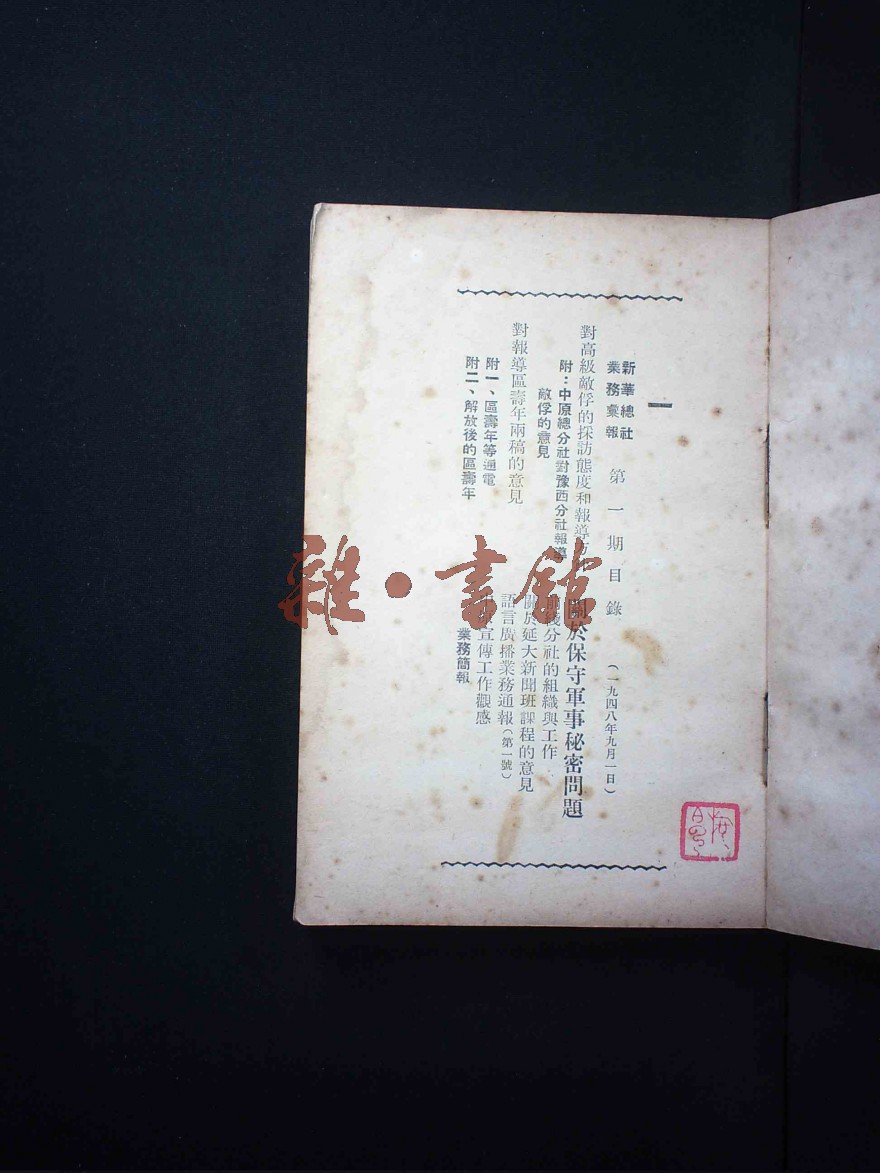 一
新華總社
業務彙報
第一期目錄
(一九四八年九月一日)
對高級敵俘的採訪態度和報導
附：中原總分社對豫西分社報導
敵俘的意見
對報導區壽年兩稿的意見
附一、區壽年等通電
附二、解放後的區壽年
關於保守軍事秘密問題
分社的組織與工作
關於延大新聞班課程的意見
語言廣播業務通報(第一號)
宣傳工作觀感
業務簡報
雜·書館